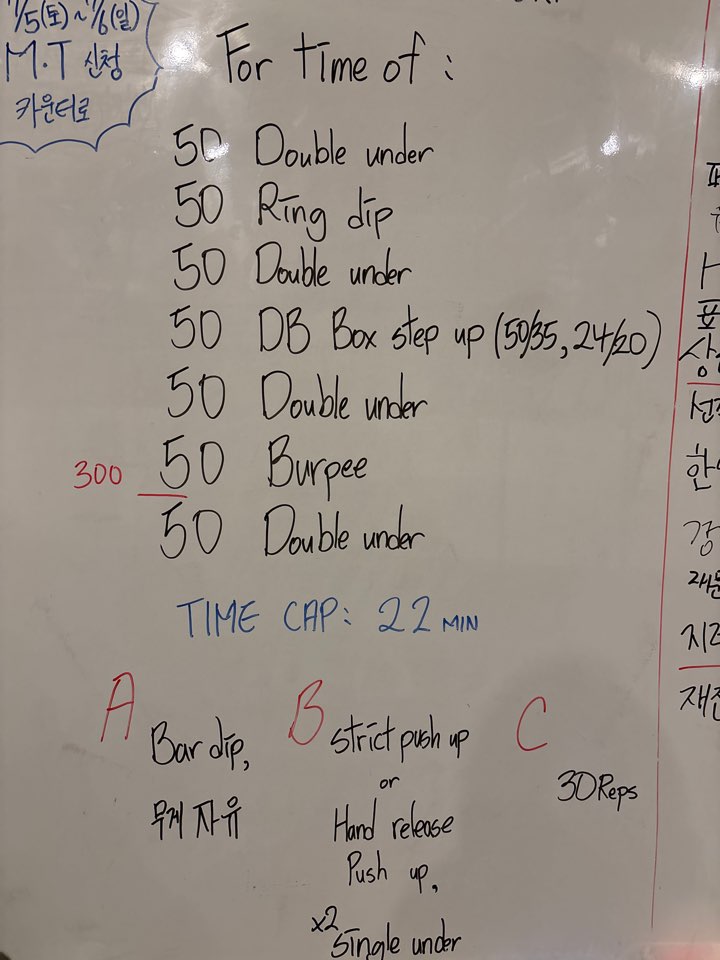 7/5(토)~7/6(일)
M.T 신청
카운터로
For time of :
50 Double under
50 Ring dip
50 Double under
50 DB Box step up (50/35, 24/20)
50 Double under
300 50 Burpee
50 Double under
TIME CAP: 22 MIN
A
Bar dip,
무게 자유
B
strict push up
or
Hand release
Push up,
x2
Single under
C
30 Reps